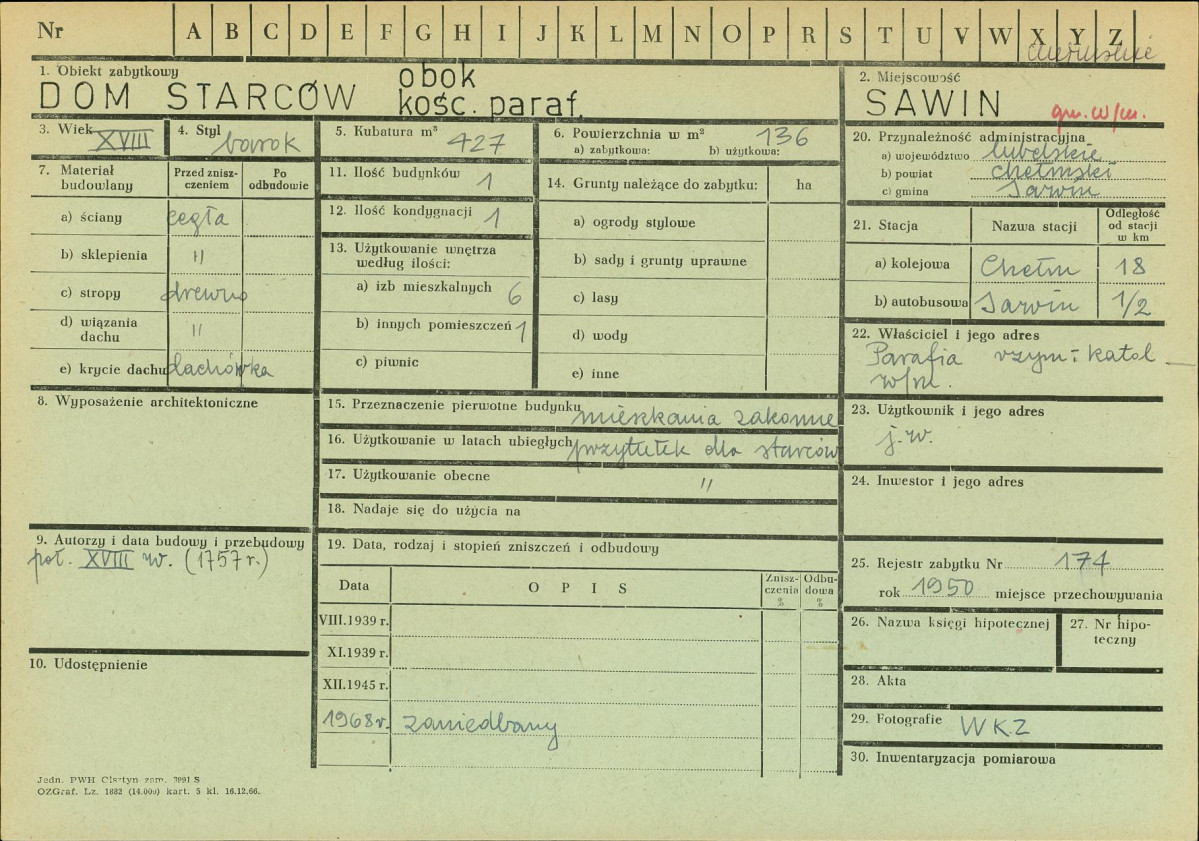 Nr A B C D E F G H I J K L M N O P R S T U V W X Y Z
1. Obiekt zabytkowy
DOM STARCÓW obok
kośc. paraf.
2. Miejscowość
SAWIN
gm. w/m.
3. Wiek XVIII
4. Styl barok
5. Kubatura m³ 427
6. Powierzchnia w m² 136
a) zabytkowa: b) użytkowa:
7. Materiał budowlany
Przed zniszczeniem
Po odbudowie
a) ściany cegła
b) sklepienia "
c) stropy drewno
d) wiązania dachu "
e) krycie dachu dachówka
8. Wyposażenie architektoniczne
9. Autorzy i data budowy i przebudowy
poł. XVIII w. (1757 r.)
10. Udostępnienie
11. Ilość budynków 1
12. Ilość kondygnacji 1
13. Użytkowanie wnętrza
według ilości:
a) izb mieszkalnych 6
b) innych pomieszczeń 1
c) piwnic
14. Grunty należące do zabytku: ha
a) ogrody stylowe
b) sady i grunty uprawne
c) lasy
d) wody
e) inne
15. Przeznaczenie pierwotne budynku mieszkania zakonne
16. Użytkowanie w latach ubiegłych przytułek dla starców
17. Użytkowanie obecne "
18. Nadaje się do użycia na
19. Data, rodzaj i stopień zniszczeń i odbudowy
Data O P I S Zniszczenia % Odbudowa %
VIII.1939 r.
XI.1939 r.
XII.1945 r.
1968 r. zaniedbany
20. Przynależność administracyjna
a) województwo lubelskie
b) powiat chełmski
c) gmina Sawin
21. Stacja Nazwa stacji Odległość od stacji w km
a) kolejowa Chełm 18
b) autobusowa Sawin 1/2
22. Właściciel i jego adres
Parafia rzym-katol
w/m.
23. Użytkownik i jego adres
j.w.
24. Inwestor i jego adres
25. Rejestr zabytku Nr 174
rok 1950 miejsce przechowywania
26. Nazwa księgi hipotecznej
27. Nr hipoteczny
28. Akta
29. Fotografie WKZ
30. Inwentaryzacja pomiarowa
Jedn. PWH Olsztyn zam. 3991 S
OZGraf. Lz. 1882 (14.000) kart. 5 kl. 16.12.66.